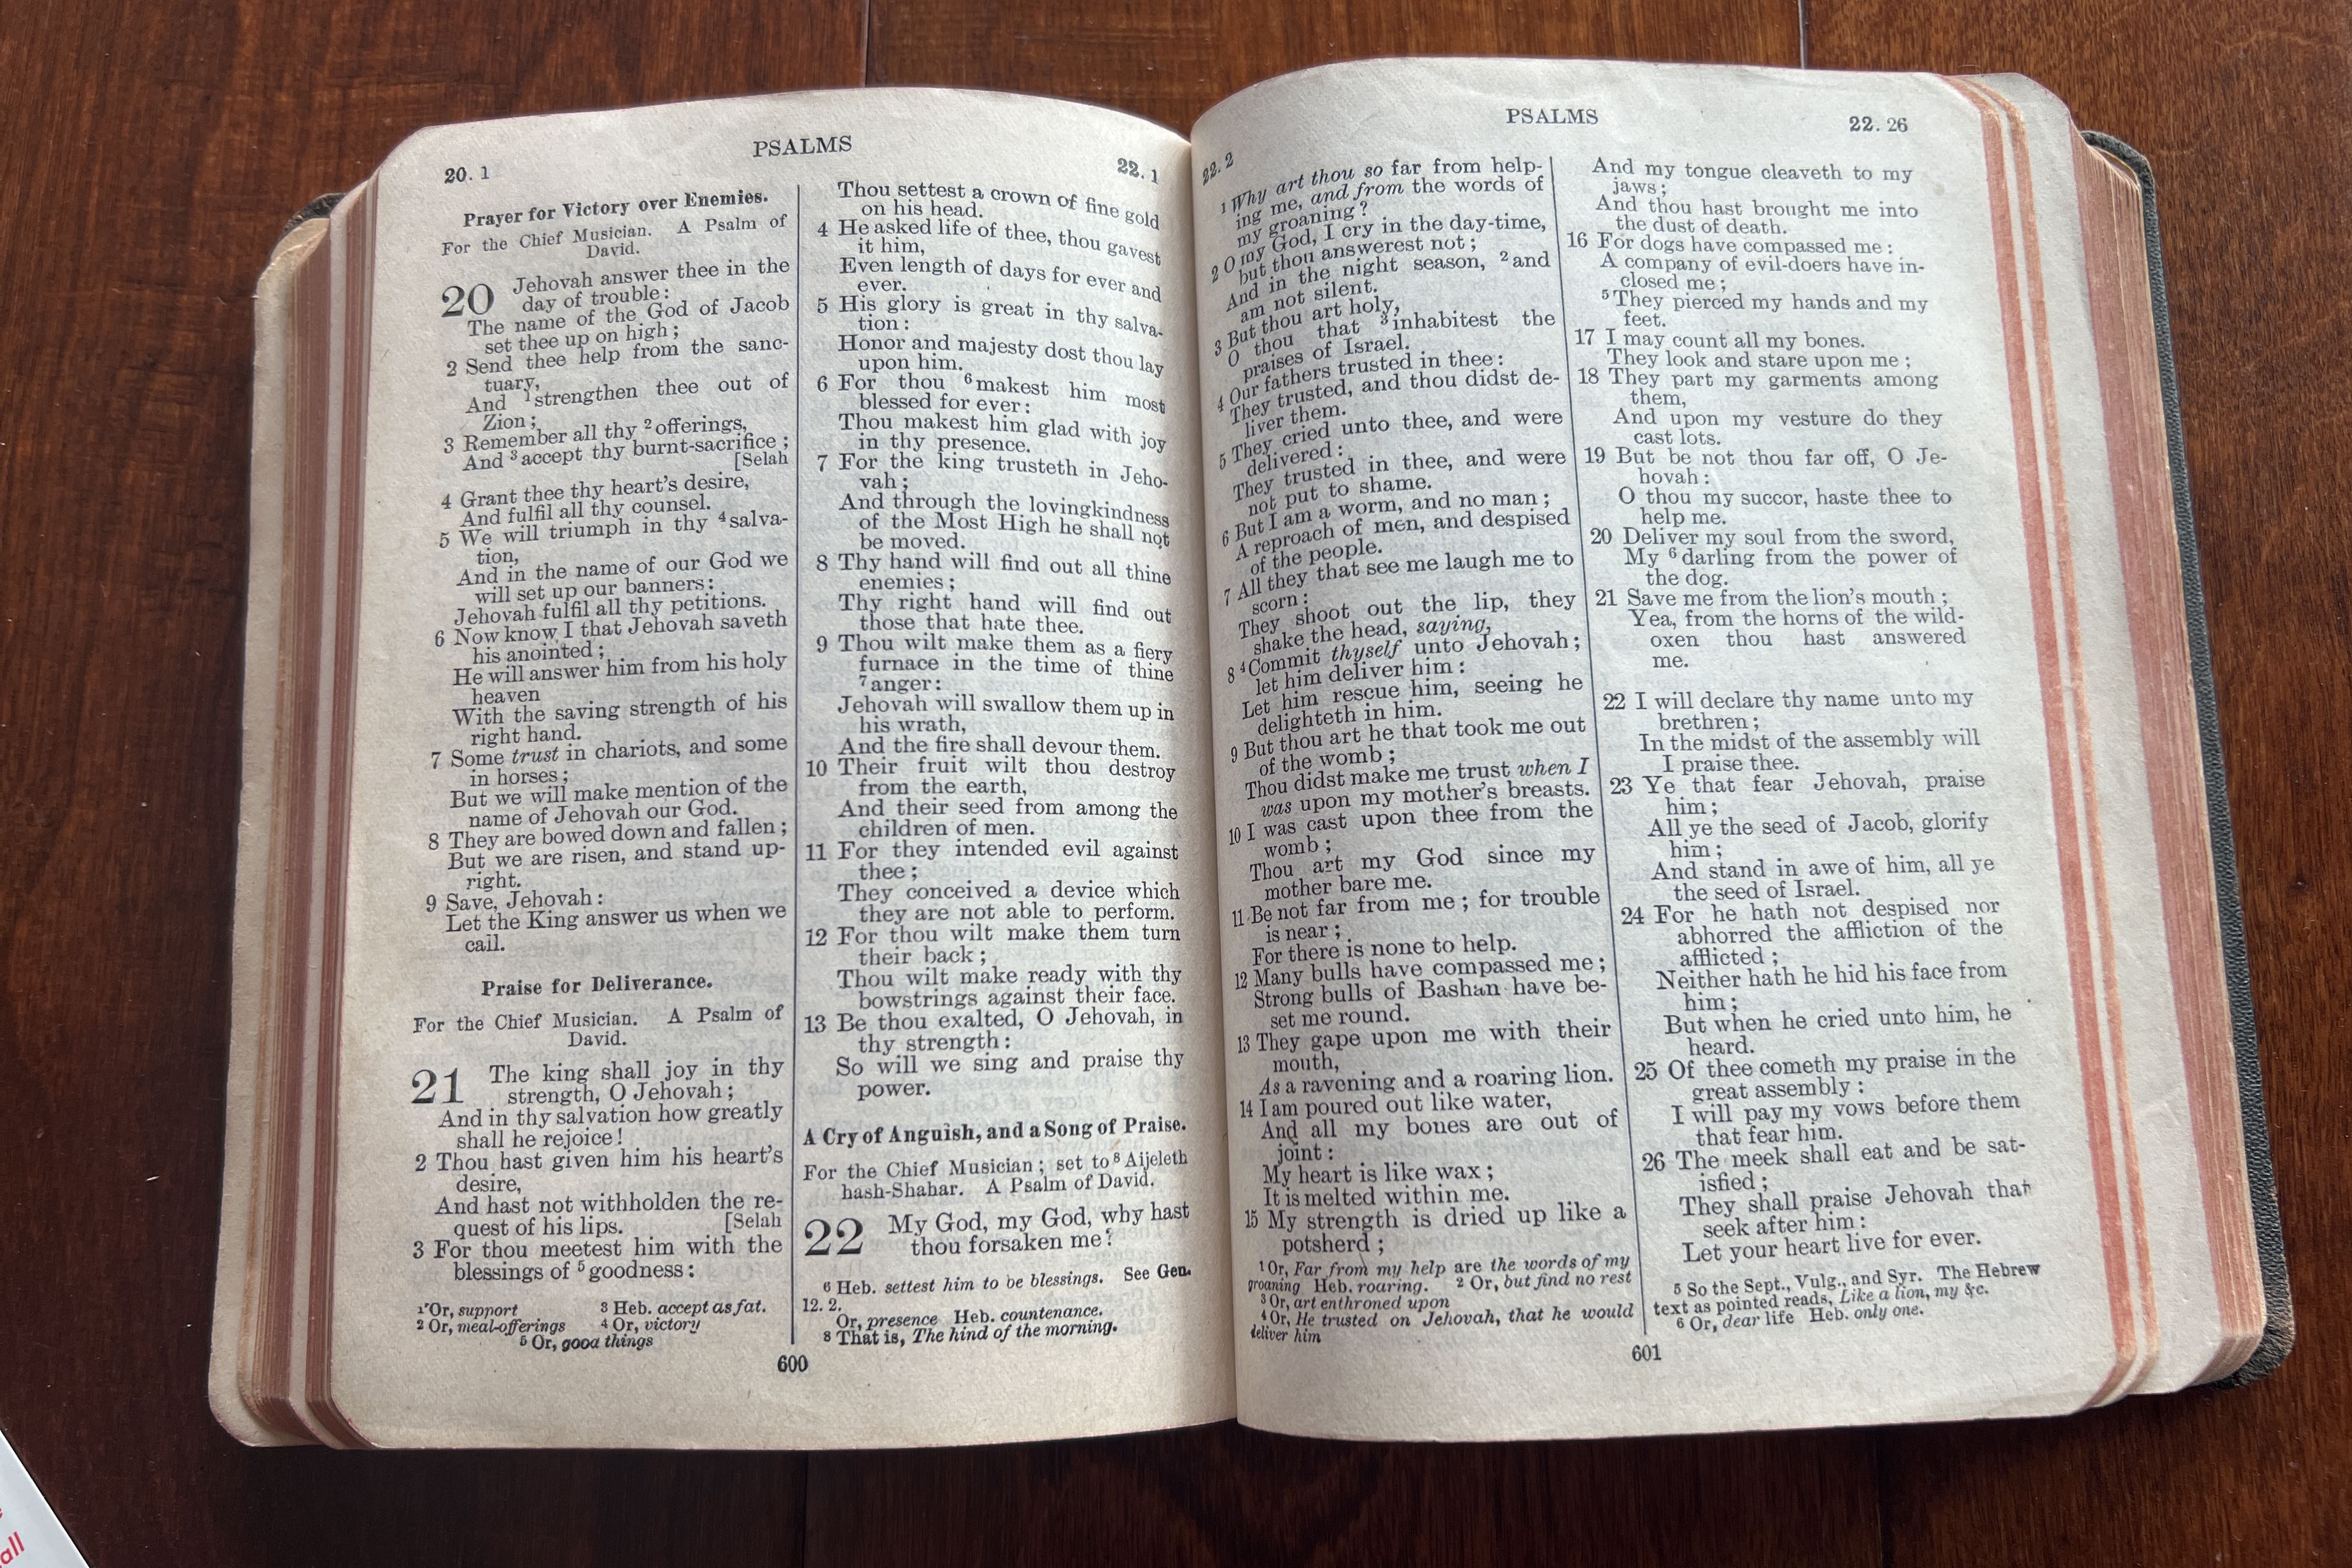 PSALMS
20. 1
22. 1
Prayer for Victory over Enemies.
For the Chief Musician. A Psalm of
David.
20 Jehovah answer thee in the
day of trouble:
The name of the God of Jacob
set thee up on high;
2 Send thee help from the sanc-
tuary,
And ¹strengthen thee out of
Zion;
3 Remember all thy ²offerings,
And ³accept thy burnt-sacrifice;
[Selah
4 Grant thee thy heart's desire,
And fulfil all thy counsel.
5 We will triumph in thy ⁴salva-
tion,
And in the name of our God we
will set up our banners:
Jehovah fulfil all thy petitions.
6 Now know I that Jehovah saveth
his anointed;
He will answer him from his holy
heaven
With the saving strength of his
right hand.
7 Some trust in chariots, and some
in horses;
But we will make mention of the
name of Jehovah our God.
8 They are bowed down and fallen;
But we are risen, and stand up-
right.
9 Save, Jehovah:
Let the King answer us when we
call.
Praise for Deliverance.
For the Chief Musician. A Psalm of
David.
21 The king shall joy in thy
strength, O Jehovah;
And in thy salvation how greatly
shall he rejoice!
2 Thou hast given him his heart's
desire,
And hast not withholden the re-
quest of his lips. [Selah
3 For thou meetest him with the
blessings of ⁵goodness:
¹ Or, support ³ Heb. accept as fat.
² Or, meal-offerings ⁴ Or, victory
⁵ Or, good things
Thou settest a crown of fine gold
on his head.
4 He asked life of thee, thou gavest
it him,
Even length of days for ever and
ever.
5 His glory is great in thy salva-
tion:
Honor and majesty dost thou lay
upon him.
6 For thou ⁶makest him most
blessed for ever:
Thou makest him glad with joy
in thy presence.
7 For the king trusteth in Jeho-
vah;
And through the lovingkindness
of the Most High he shall not
be moved.
8 Thy hand will find out all thine
enemies;
Thy right hand will find out
those that hate thee.
9 Thou wilt make them as a fiery
furnace in the time of thine
⁷anger:
Jehovah will swallow them up in
his wrath,
And the fire shall devour them.
10 Their fruit wilt thou destroy
from the earth,
And their seed from among the
children of men.
11 For they intended evil against
thee;
They conceived a device which
they are not able to perform.
12 For thou wilt make them turn
their back;
Thou wilt make ready with thy
bowstrings against their face.
13 Be thou exalted, O Jehovah, in
thy strength:
So will we sing and praise thy
power.
A Cry of Anguish, and a Song of Praise.
For the Chief Musician; set to ⁸Aijeleth
hash-Shahar. A Psalm of David.
22 My God, my God, why hast
thou forsaken me?
⁶ Heb. settest him to be blessings. See Gen.
12. 2.
Or, presence Heb. countenance.
⁸ That is, The hind of the morning.
600
PSALMS
22. 2
22. 26
¹Why art thou so far from help-
ing me, and from the words of
my groaning?
2 O my God, I cry in the day-time,
but thou answerest not;
And in the night season, ²and
am not silent.
3 But thou art holy,
O thou that ³inhabitest the
praises of Israel.
4 Our fathers trusted in thee:
They trusted, and thou didst de-
liver them.
5 They cried unto thee, and were
delivered:
They trusted in thee, and were
not put to shame.
6 But I am a worm, and no man;
A reproach of men, and despised
of the people.
7 All they that see me laugh me to
scorn:
They shoot out the lip, they
shake the head, saying,
8 ⁴Commit thyself unto Jehovah;
let him deliver him:
Let him rescue him, seeing he
delighteth in him.
9 But thou art he that took me out
of the womb;
Thou didst make me trust when I
was upon my mother's breasts.
10 I was cast upon thee from the
womb;
Thou art my God since my
mother bare me.
11 Be not far from me; for trouble
is near;
For there is none to help.
12 Many bulls have compassed me;
Strong bulls of Bashan have be-
set me round.
13 They gape upon me with their
mouth,
As a ravening and a roaring lion.
14 I am poured out like water,
And all my bones are out of
joint:
My heart is like wax;
It is melted within me.
15 My strength is dried up like a
potsherd;
¹ Or, Far from my help are the words of my
groaning Heb. roaring. ² Or, but find no rest
³ Or, art enthroned upon
⁴ Or, He trusted on Jehovah, that he would
deliver him
And my tongue cleaveth to my
jaws;
And thou hast brought me into
the dust of death.
16 For dogs have compassed me:
A company of evil-doers have in-
closed me;
⁵They pierced my hands and my
feet.
17 I may count all my bones.
They look and stare upon me;
18 They part my garments among
them,
And upon my vesture do they
cast lots.
19 But be not thou far off, O Je-
hovah:
O thou my succor, haste thee to
help me.
20 Deliver my soul from the sword,
My ⁶darling from the power of
the dog.
21 Save me from the lion's mouth;
Yea, from the horns of the wild-
oxen thou hast answered
me.
22 I will declare thy name unto my
brethren;
In the midst of the assembly will
I praise thee.
23 Ye that fear Jehovah, praise
him;
All ye the seed of Jacob, glorify
him;
And stand in awe of him, all ye
the seed of Israel.
24 For he hath not despised nor
abhorred the affliction of the
afflicted;
Neither hath he hid his face from
him;
But when he cried unto him, he
heard.
25 Of thee cometh my praise in the
great assembly:
I will pay my vows before them
that fear him.
26 The meek shall eat and be sat-
isfied;
They shall praise Jehovah that
seek after him:
Let your heart live for ever.
⁵ So the Sept., Vulg., and Syr. The Hebrew
text as pointed reads, Like a lion, my &c.
⁶ Or, dear life Heb. only one.
601
all